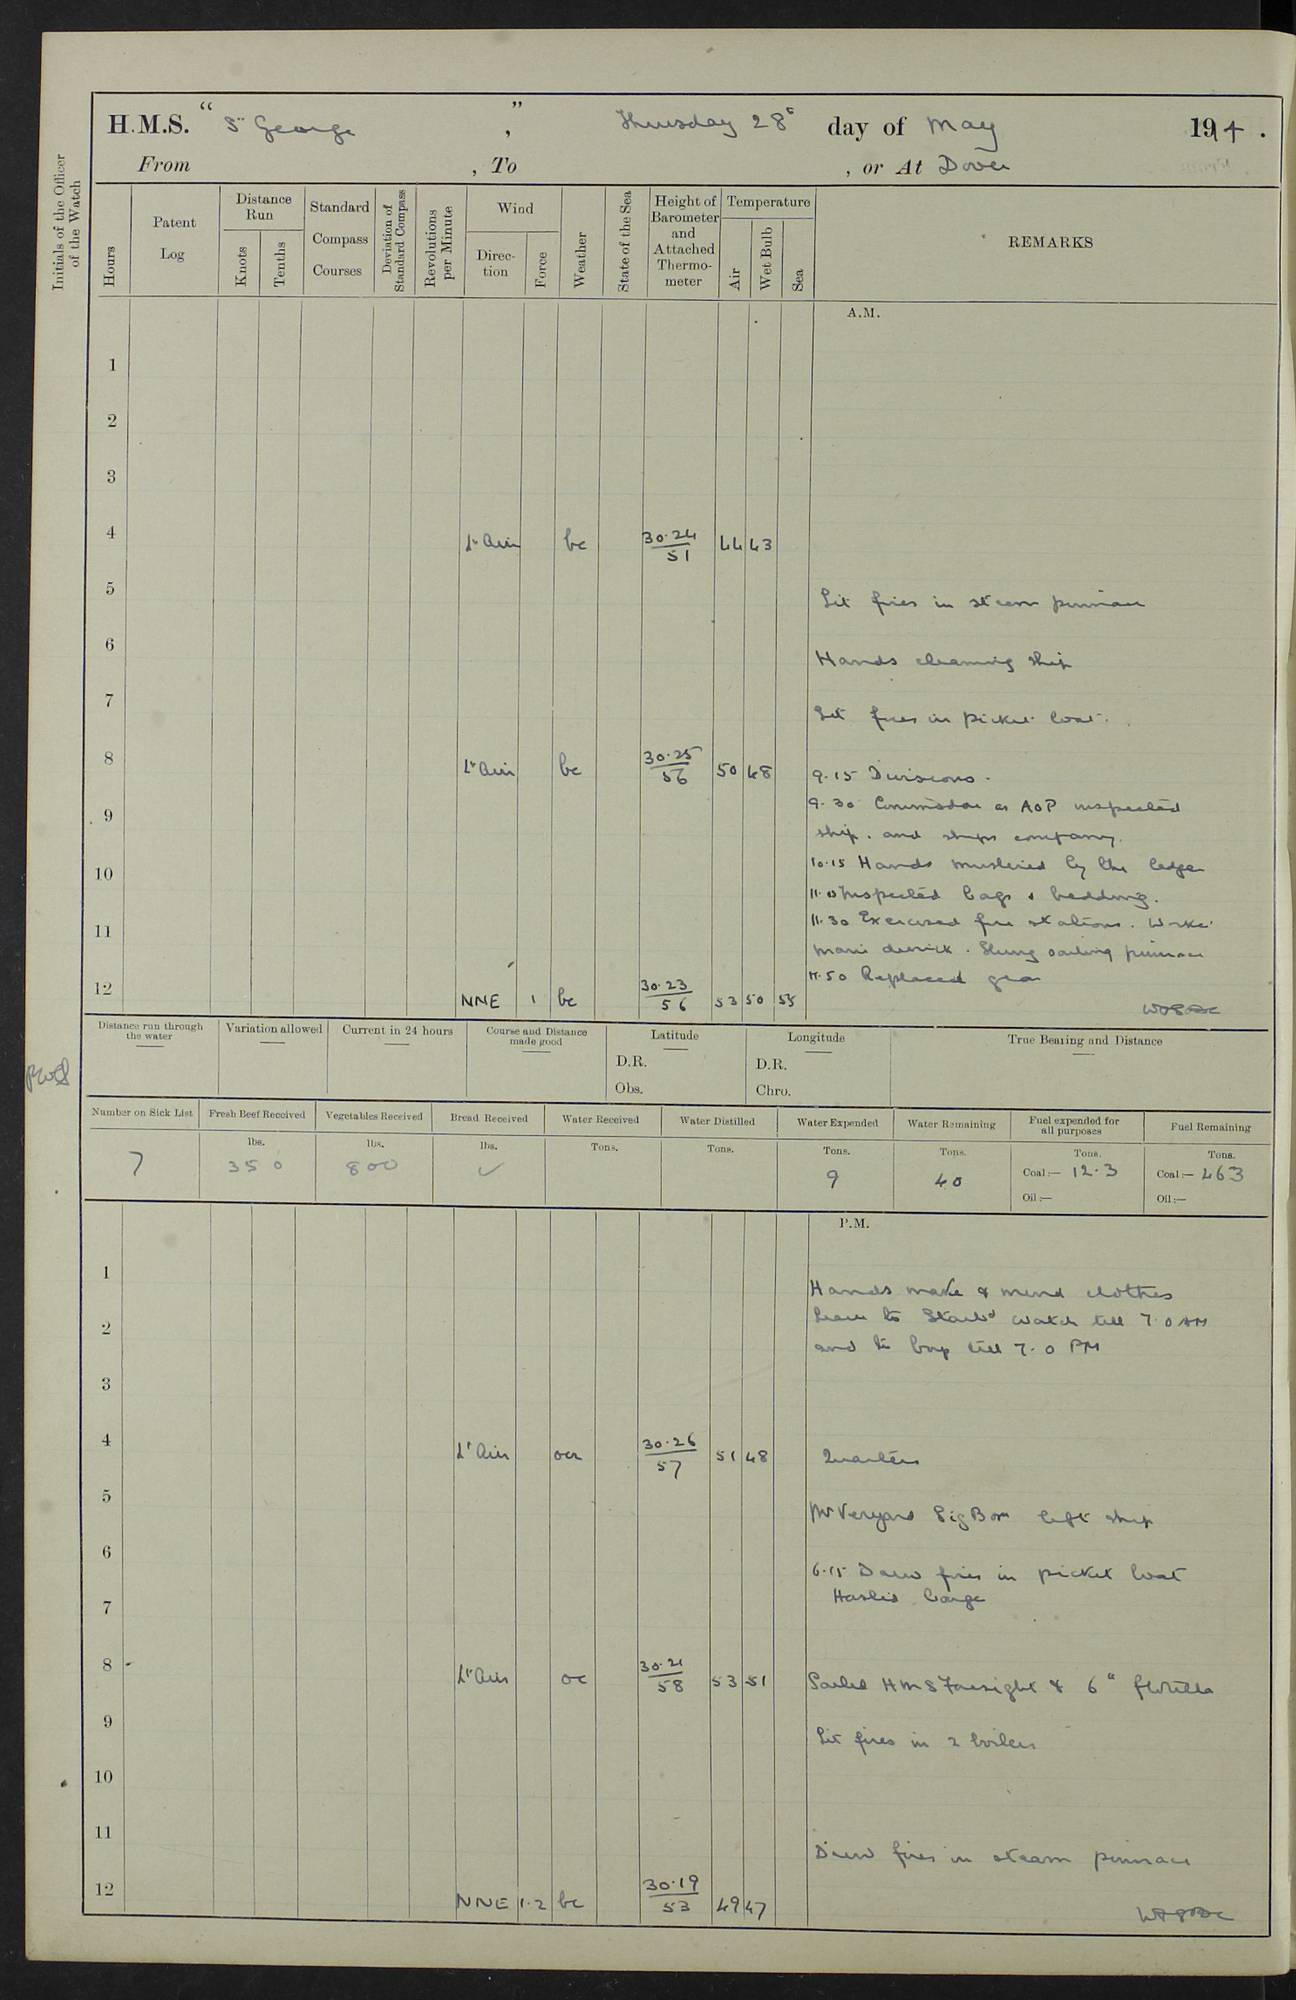 H.M.S. " St George " , Thursday 28th day of May 1914 .
From , To , or At Dover
Initials of the Officer of the Watch
Hours
Patent Log
Distance Run
Knots
Tenths
Standard Compass Courses
Deviation of Standard Compass
Revolutions per Minute
Wind
Direction
Force
Weather
State of the Sea
Height of Barometer and Attached Thermometer
Temperature
Air
Wet Bulb
Sea
REMARKS
A.M.
1
2
3
4 Lt Air bc 30.24 51 44 43
5 Lit fires in steam pinnace
6 Hands cleaning ship
7 Lit fires in picket boat.
8 Lt Air bc 30.25 56 50 48 9.15 Divisions.
9 9.30 Commodore as AOP inspected
ship. and ships company.
10 10.15 Hands mustered by the ledger
11.0 Inspected bags & bedding.
11 11.30 Exercised fire stations.
main derrick. Slung sailing pinnace
12 NNE 1 bc 30.23 56 53 50 55 11.50 Replaced gear
Distance run through the water
Variation allowed
Current in 24 hours
Course and Distance made good
Latitude
D.R.
Obs.
Longitude
D.R.
Chro.
True Bearing and Distance
Number on Sick List
Fresh Beef Received
Vegetables Received
Bread Received
Water Received
Water Distilled
Water Expended
Water Remaining
Fuel expended for all purposes
Fuel Remaining
lbs. lbs. lbs. Tons. Tons. Tons. Tons. Tons. Tons.
7 350 800 ✓ 9 40 Coal:— 12.3 Coal:— 463
Oil:— Oil:—
P.M.
1 Hands make & mend clothes
2 Leave to Starbd watch till 7.0 AM
and to boys till 7.0 PM
3
4 Lt Air ocr 30.26 57 51 48 Quarters
5 Mr Veryard Sig Bosn left ship
6 6.15 Drew fires in picket boat
7 Hoisted barge
8 Lt Air oc 30.21 58 53 51 Sailed HMS Foresight & 6th flotilla
9 Lit fires in 2 boilers
10
11 Drew fires in steam pinnace
12 NNE 1.2 bc 30.19 53 49 47